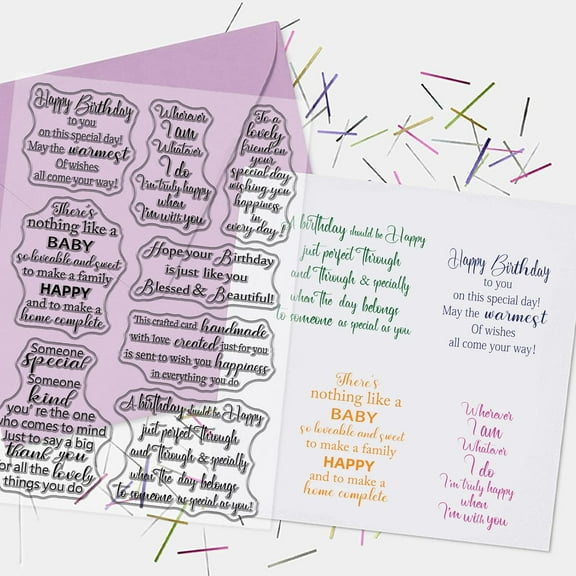 Happy Birthday
to you
on this special day!
May the warmest
Of wishes
all come your way!
Wherever
I am
Whatever
I do
I'm truly happy
when
I'm with you
To a
lovely
friend on
your
special day
wishing you
happiness
in
every day!
There's
nothing like a
BABY
so loveable and sweet
to make a family
HAPPY
and to make a
home complete
Hope your Birthday
is just like you
Blessed & Beautiful!
This crafted card handmade
with love created just for you
is sent to wish you happiness
in everything you do
Someone
special
Someone
kind
you're the one
who comes to mind
Just to say a big
thank you
for all the lovely
things you do
A birthday should be Happy
just perfect Through
and Through & specially
when The day belongs
to someone as special as you!
A birthday should be Happy
just perfect Through
and Through & specially
when The day belongs
to someone as special as you
Happy Birthday
to you
on this special day!
May the warmest
Of wishes
all come your way!
There's
nothing like a
BABY
so loveable and sweet
to make a family
HAPPY
and to make a
home complete
Wherever
I am
Whatever
I do
I'm truly happy
when
I'm with you